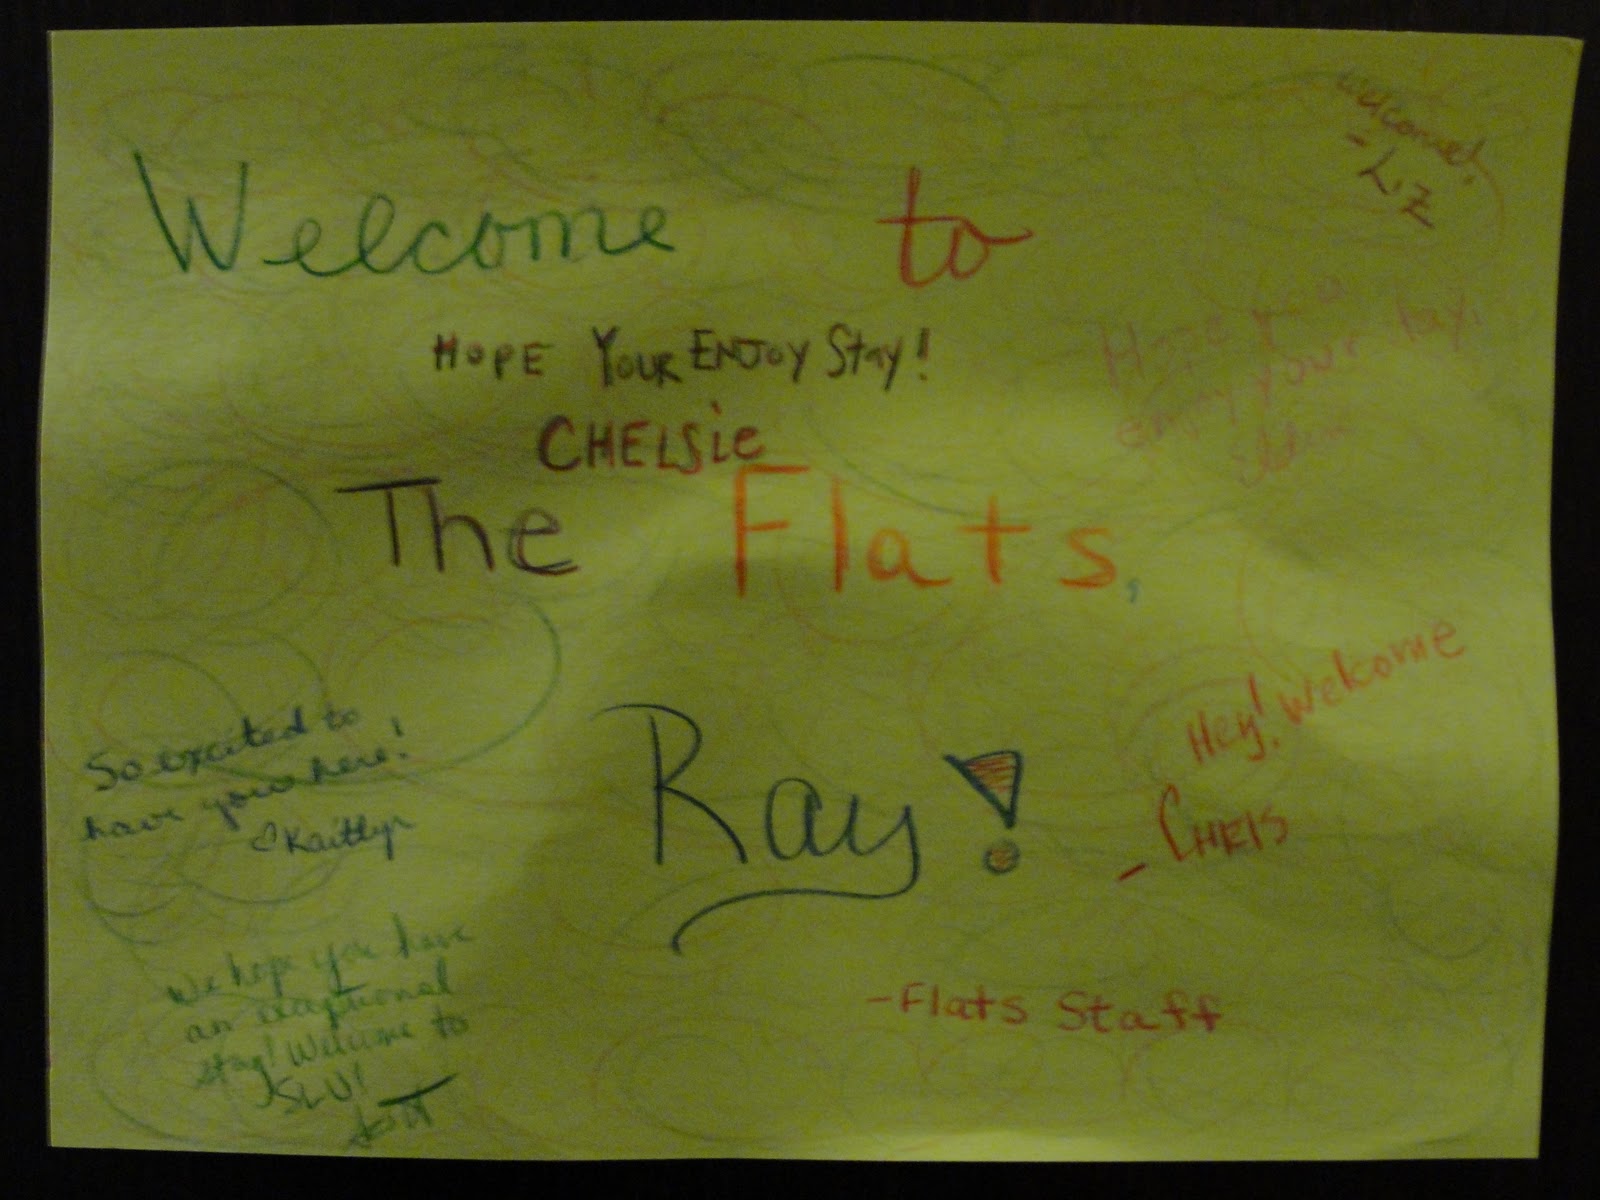 Welcome to
welcome!
- Liz
HOPE YOUR ENJOY Stay!
CHELSie
Hope you
enjoy your tay,
The Flats,
Ray!
Hey! Welcome
- CHRIS
So excited to
have you here!
Kaitlyn
We hope you have
an exceptional
stay! Welcome to
SLU!
-Flats Staff